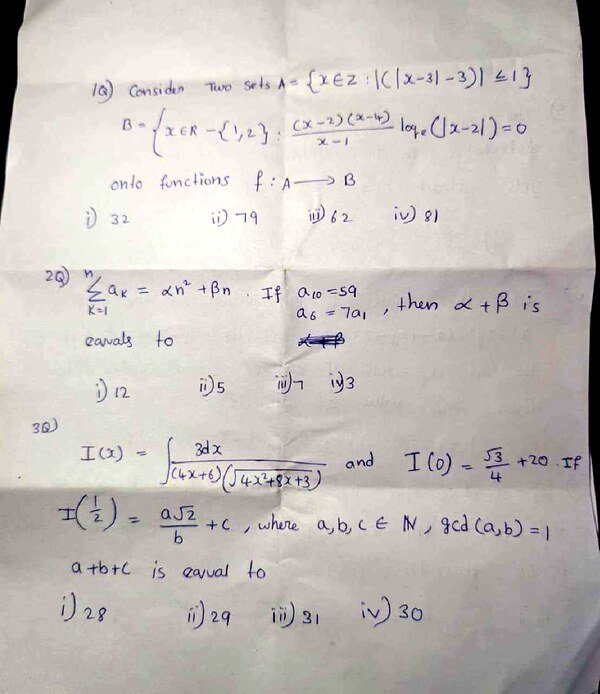 1Q) Consider Two sets A = {x ∈ Z : |(|x-3|-3)| ≤ 1}
B = {x ∈ R - {1,2} : (x-2)(x-4)/(x-1) logₑ(|x-2|) = 0
onto functions f : A → B
i) 32 ii) 79 iii) 62 iv) 81
2Q) ∑ₖ₌₁ⁿ aₖ = αn² + βn . If a₁₀ = 59
a₆ = 7a₁ , then α + β is
equals to
i) 12 ii) 5 iii) 7 iv) 3
3Q)
I(x) = ∫ 3dx/((4x+6)(√(4x²+8x+3))) and I(0) = √3/4 + 20 . If
I(1/2) = a√2/b + c , where a, b, c ∈ N , gcd(a,b) = 1
a+b+c is equal to
i) 28 ii) 29 iii) 31 iv) 30